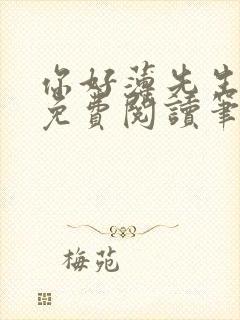 你好薄先生
免費閱讀筆
梅苑